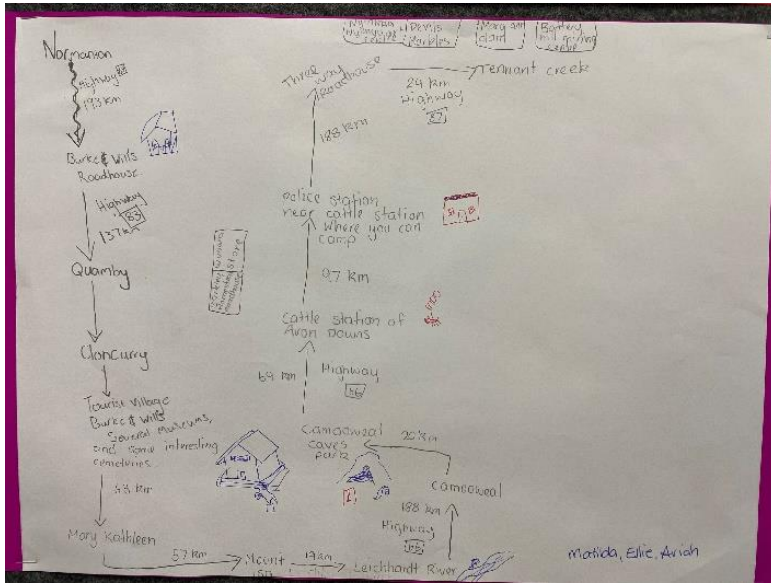 Normanton
Highway 83
193 km
Burke & Wills
Roadhouse
Highway
83
137 km
Quamby
Cloncurry
Tourist Village
Burke & Wills
Several museums,
and some interesting
cemeteries
53 km
Mary Kathleen
57 km
Mount
Isa
19 km
Leichhardt River
Highway
66
188 km
Camooweal
20 km
Camooweal
caves
park
Highway
66
69 km
Cattle station of
Avon Downs
97 km
police station
near cattle station
where you can
camp
188 km
Three
way
Roadhouse
24 km
Highway
87
Tennant creek
Devils
Marbles
Battery
Centre
store
Matilda, Ellie, Aviah